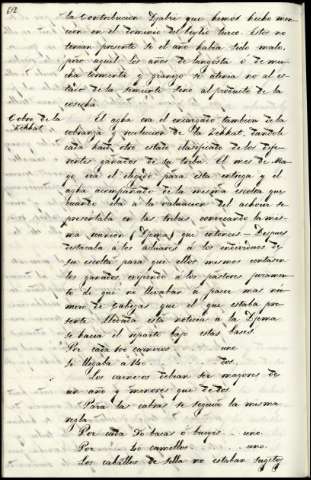 62
la contribucion Djabri que hemos hecho men-
cion en el dominio del beylic turco. Estos no
tenian presente si el año habia sido malo,
pero aquel los años de langosta ó de mu-
cha tormenta y granizo se atenia no al es-
tado de la simiente sino al producto de la
cosecha.
Cobro de la
Zekkat.
El agha era el encargado tambien de la
cobranza y recoleccion de la Zekkat, dandole
cada kaid otro estado clasificado de los dife-
rentes ganados de su tribu. El mes de Ma-
yo era el elegido para esta entrega y el
agha acompañado de la misma escolta que
cuando iba á la valuacion del achour se
presentaba en las tribus convocando la mis-
ma reunion (Djema) que entonces — Despues
destacaba á los aduares á los individuos de
su escolta para que ellos mismos contasen
los ganados, exijiendo á los pastores juramen-
to de que no llevaban á pacer mas nú-
mero de cabezas que el que estaba pre-
sente. Llevada esta noticia á la Djema
se hacia el reparto bajo estas bases.
Por cada 100 carneros uno
Si llegaba á 140 dos.
Los carneros debian ser mayores de
un año y menores que de dos
Para las cabras se seguia la misma
regla
Por cada 30 bacas ó bueyes — uno.
Por 40 camellos — uno.
Los caballos de silla no estaban sugetos